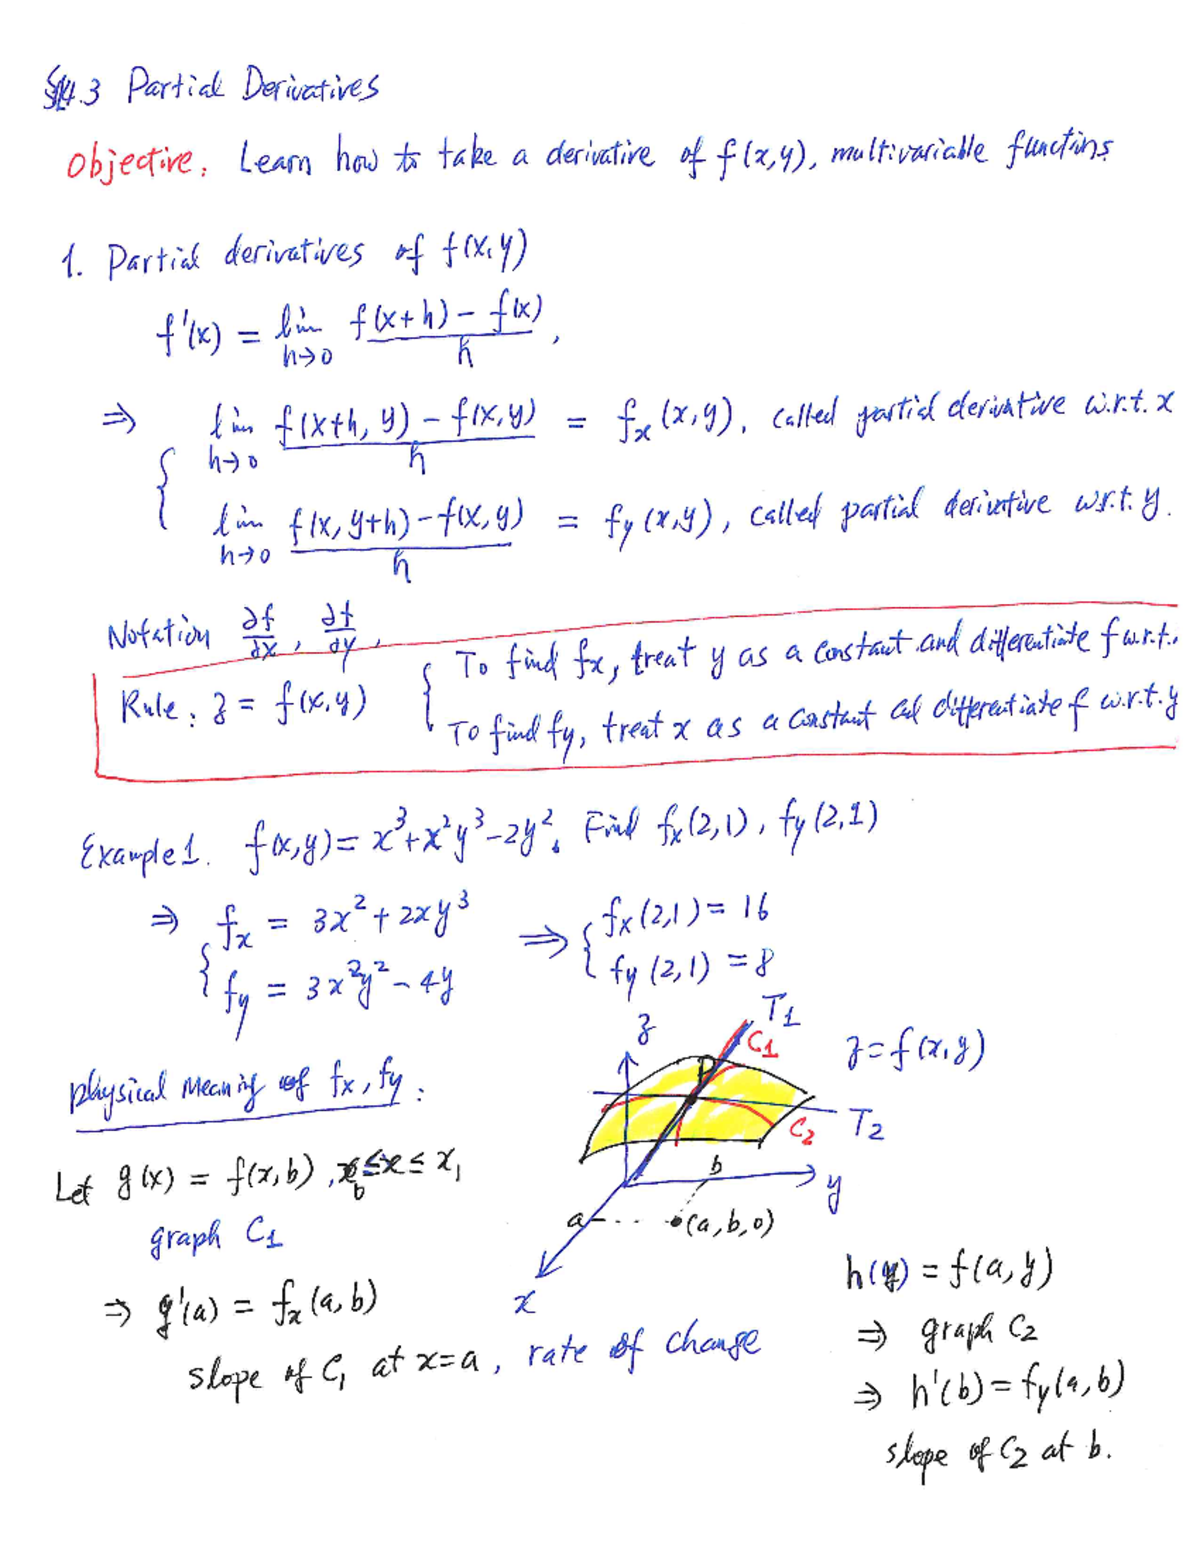 §14.3 Partial Derivatives
Objective: Learn how to take a derivative of f(x,y), multivariable functions
1. Partial derivatives of f(x,y)
f'(x) = lim h→0 f(x+h) - f(x) / h ,
⇒ { lim h→0 f(x+h, y) - f(x,y) / h = fx(x,y), called partial derivative w.r.t. x
lim h→0 f(x, y+h) - f(x,y) / h = fy(x,y), called partial derivative w.r.t. y.
Notation ∂f/∂x , ∂f/∂y ,
Rule: z = f(x,y) { To find fx, treat y as a constant and differentiate f w.r.t.
To find fy, treat x as a constant and differentiate f w.r.t. y
Example 1. f(x,y) = x³+x²y³-2y². Find fx(2,1), fy(2,1)
⇒ { fx = 3x²+2xy³ ⇒ { fx(2,1) = 16
fy = 3x²y²-4y fy(2,1) = 8
physical Meaning of fx, fy :
z
T1
C1
P
z=f(x,y)
C2
T2
b
y
a
(a,b,0)
x
Let g(x) = f(x,b), ≤x≤ x1
graph C1
⇒ g'(a) = fx(a,b)
slope of C1 at x=a, rate of change
h(y) = f(a,y)
⇒ graph C2
⇒ h'(b) = fy(a,b)
slope of C2 at b.